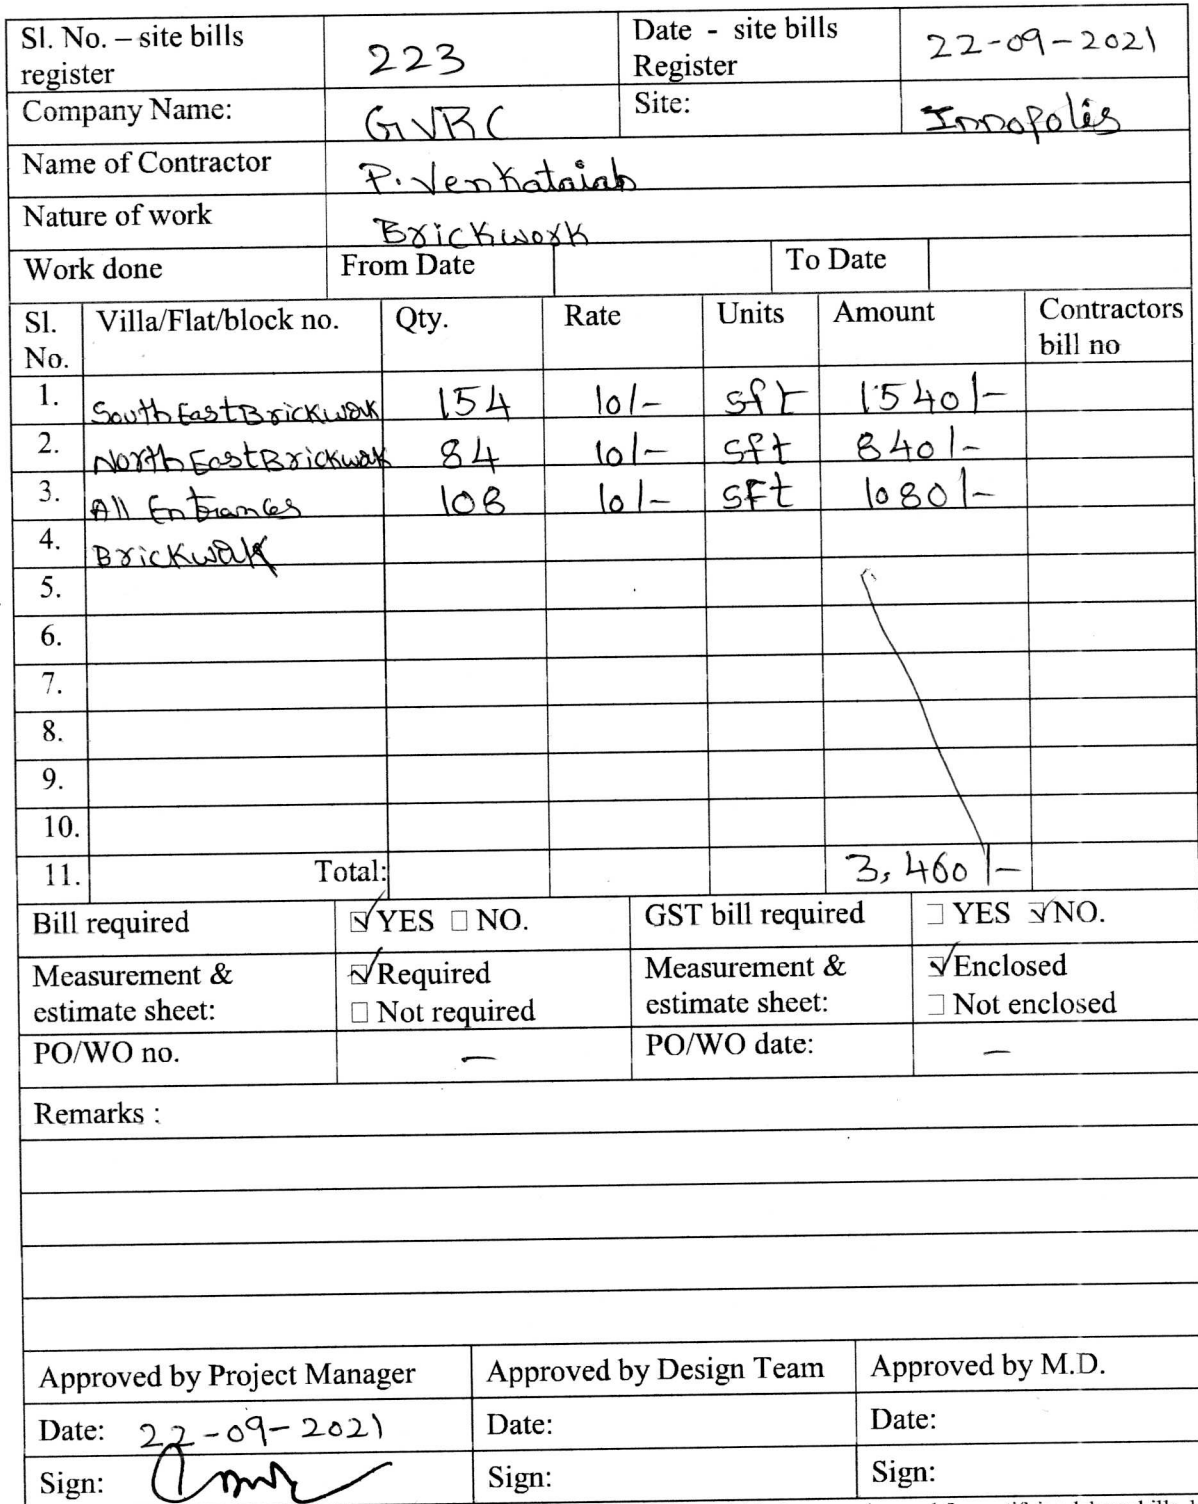 Sl. No. – site bills register 223 Date - site bills Register 22-09-2021
Company Name: GVRC Site: Innopolis
Name of Contractor P. Venkataiah
Nature of work Brickwork
Work done From Date To Date
Sl. No. Villa/Flat/block no. Qty. Rate Units Amount Contractors bill no
1. South East Brickwork 154 10/- sft 1540/-
2. North East Brickwork 84 10/- sft 840/-
3. All Entrances 108 10/- SFt 1080/-
4. Brickwork
5.
6.
7.
8.
9.
10.
11. Total: 3,460/-
Bill required ☑ YES □ NO. GST bill required □ YES ☑ NO.
Measurement & estimate sheet: ☑ Required □ Not required Measurement & estimate sheet: ☑ Enclosed □ Not enclosed
PO/WO no. – PO/WO date: –
Remarks :
Approved by Project Manager Approved by Design Team Approved by M.D.
Date: 22-09-2021 Date: Date:
Sign: Sign: Sign: